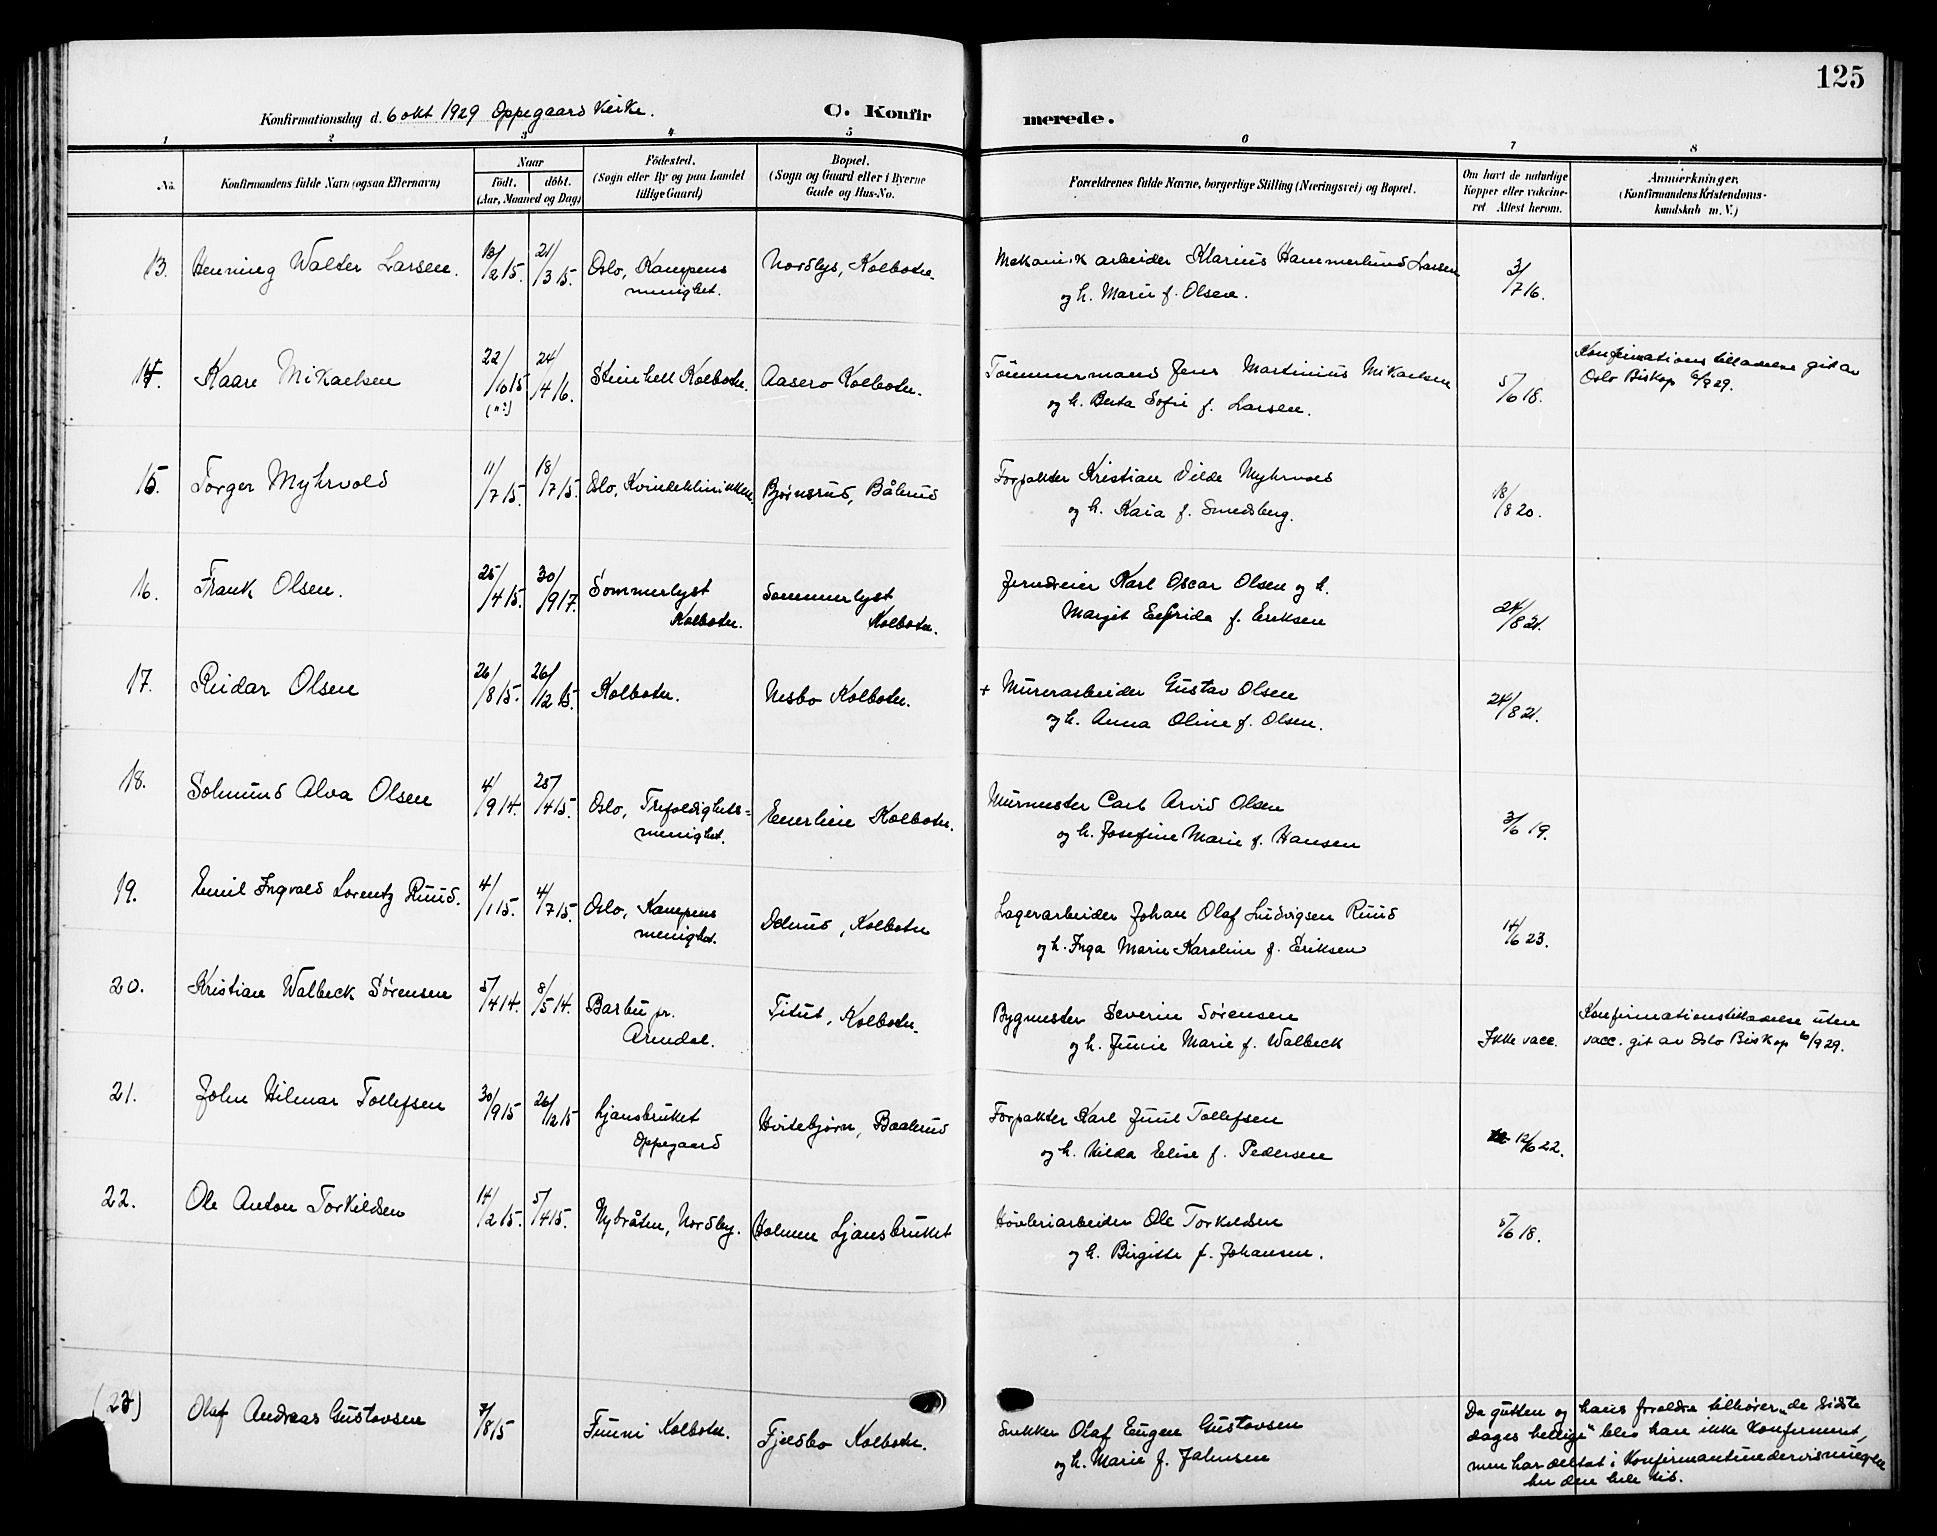 125
Konfirmationsdag d. 6 okt 1929 Oppegaard Kirke.
C. Konfirmerede.
1 2 3 4 5 6 7 8
No. Konfirmandens fulde Navn (ogsaa Efternavn) Naar født. døbt. (Aar, Maaned og Dag)
Fødested. (Sogn eller By og paa Landet tillige Gaard)
Bopæl. (Sogn og Gaard eller i Byerne Gade og Hus-No.
Forældrenes fulde Navne, borgerlige Stilling (Næringsvei) og Bopæl.
Om havt de naturlige Kopper eller vakcineret Attest herom.
Anmærkninger. (Konfirmandens Kristendomskundskab m. V.)
13. Henning Walter Larsen. 13/2 15. 21/3 15. Oslo, Kampens Nordlys, Kolbotn. Mekanik arbeider Klarius Hammerlund Larsen 3/7 16.
menighet. og h. Marie f. Olsen.
14. Kaare Mikaelsen 22/10 15 24/4 16. Steinhell Kolbotn. Aasero Kolbotn. Tömmermand Jens Martinius Mikaelsen 5/6 18. Konfirmationstilladelse git av
og h. Berta Sofie f. Larsen. Oslo Biskop 6/9 29.
15. Torger Myhrvold 11/7 15. 18/7 15. Oslo, Kvindeklinikken. Bjørnsrud, Bålerud Forpakter Kristian Vilde Myhrvold 18/8 20.
og h. Kaia f. Smedsberg.
16. Frank Olsen. 25/4 15. 30/9 17. Sommerlyst Sommerlyst Jerndreier Karl Oscar Olsen og h. 24/8 21.
Kolbotn. Kolbotn. Margit Elfrida f. Eriksen
17. Reidar Olsen 26/8 15. 26/12 15. Kolbotn. Nesbo Kolbotn. + Murerarbeider Gustav Olsen 24/8 21.
og h. Anna Oline f. Olsen.
18. Solmund Alva Olsen 4/9 14. 25/4 15. Oslo, Trefoldighets= Enerlien Kolbotn. Murmester Carl Arvid Olsen 3/6 19.
menighet. og h. Josefine Marie f. Hansen
19. Emil Ingvald Lorentz Ruud. 4/1 15. 4/7 15. Oslo, Kampens Kolbotn Lagerarbeider Johan Olaf Ludvigsen Ruud 14/6 23.
menighet. og h. Inga Marie Karoline f. Eriksen
20. Kristian Walbeck Sørensen 5/4 14. 8/5 14. Barbu pr. Titut, Kolbotn. Bygmester Severin Sørensen Ikke vacc. Konfirmationstilladelse uten
Arendal. og h. Junie Marie f. Walbeck vacc. git av Oslo Biskop 6/9 29.
21. John Hilmar Tollefsen 30/9 15 26/12 15 Ljansbruket Hvitebjørn, Baalerud Forpakter Karl Juul Tollefsen 12/6 22.
Oppegaard og h. Hilda Elise f. Pedersen
22. Ole Anton Torkildsen 14/2 15. 5/4 15. Nybråten, Nordby. Holmen Ljansbruket Høvleriarbeider Ole Torkildsen 5/6 18.
og h. Birgitte f. Johansen.
(23) Olaf Andreas Gustavsen 7/8 15 Furni Kolbotn. Fjeldbo Kolbotn. Snekker Olaf Eugen Gustavsen
og h. Marie f. Jahnsen
Da gutten og hans foreldre tilhører „de sidste
dages hellige" blev han ikke konfirmert,
men har deltat i Konfirmantundervisningen
her den hele tid.